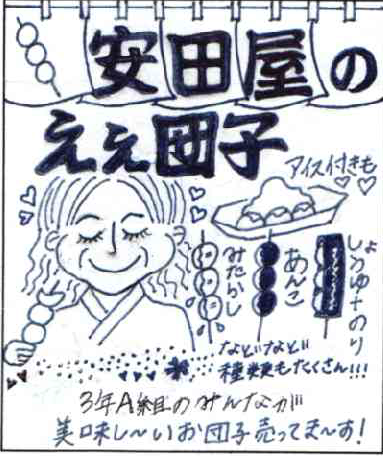 安田屋の
ええ団子
アイス付きも
みたらし
あんこ
しょうゆ+のり
などなど
種類もたくさん!!!
3年A組のみんなが
美味し〜いお団子売ってま〜す!